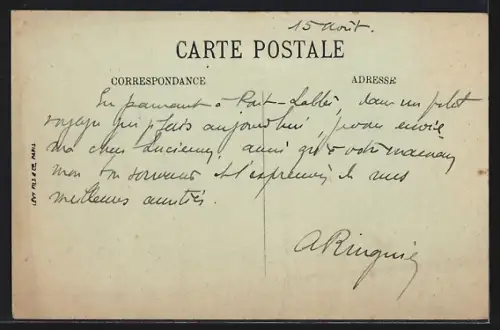 15 Août.
CARTE POSTALE
CORRESPONDANCE
ADRESSE
En passant à Port-Lablé, dans un petit
voyage que je fais aujourd'hui, je vous envoie
ma chère Lucienne, ainsi qu'à votre maman
mon bon souvenir et l'expression de mes
meilleures amitiés.
LÉVY FILS & CIE, PARIS